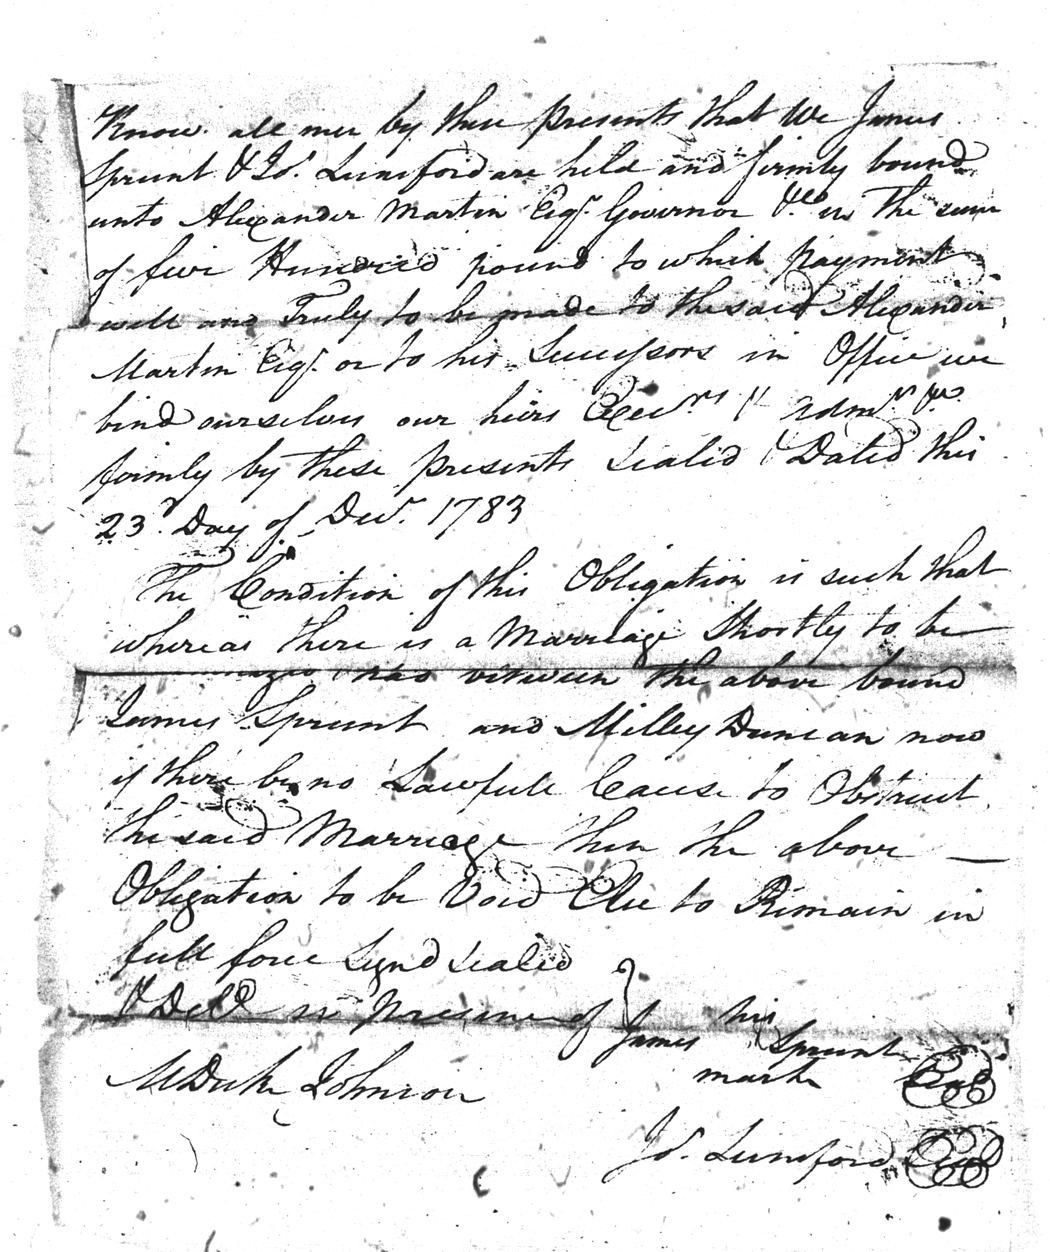 Know all men by these presents that We James
Sprunt & Jos. Lunsford are held and firmly bound
unto Alexander Martin Esqr. Governor &c. in the sum
of five Hundred pound to which payment
well and Truly to be made to the said Alexander
Martin Esqr. or to his Successors in Office we
bind ourselves our heirs Execrs & Admrs
firmly by these presents sealed & Dated this
23d Day of Decr. 1783
The Condition of this Obligation is such that
whereas there is a Marriage Shortly to be
had between the above bound
James Sprunt and Milley Duncan now
if there be no Lawfull Cause to Obstruct
the said Marriage then the above —
Obligation to be Void Else to Remain in
full force Signd sealed
& Deld in Presence of
James his Sprunt Seal
mark
Johnson
Jos. Lunsford Seal